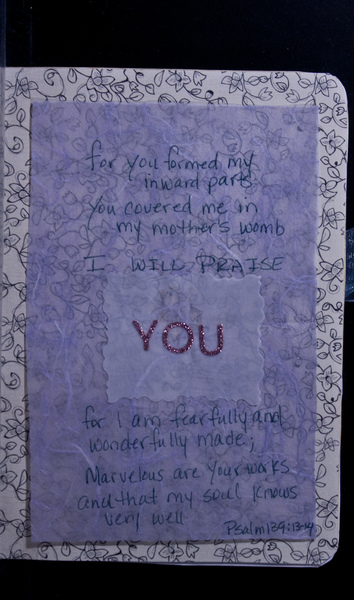 for you formed my
inward parts
you covered me in
my mother's womb
I WILL PRAISE
YOU
for I am fearfully and
wonderfully made;
Marvelous are your works
and that my soul knows
very well
Psalm 139:13-14